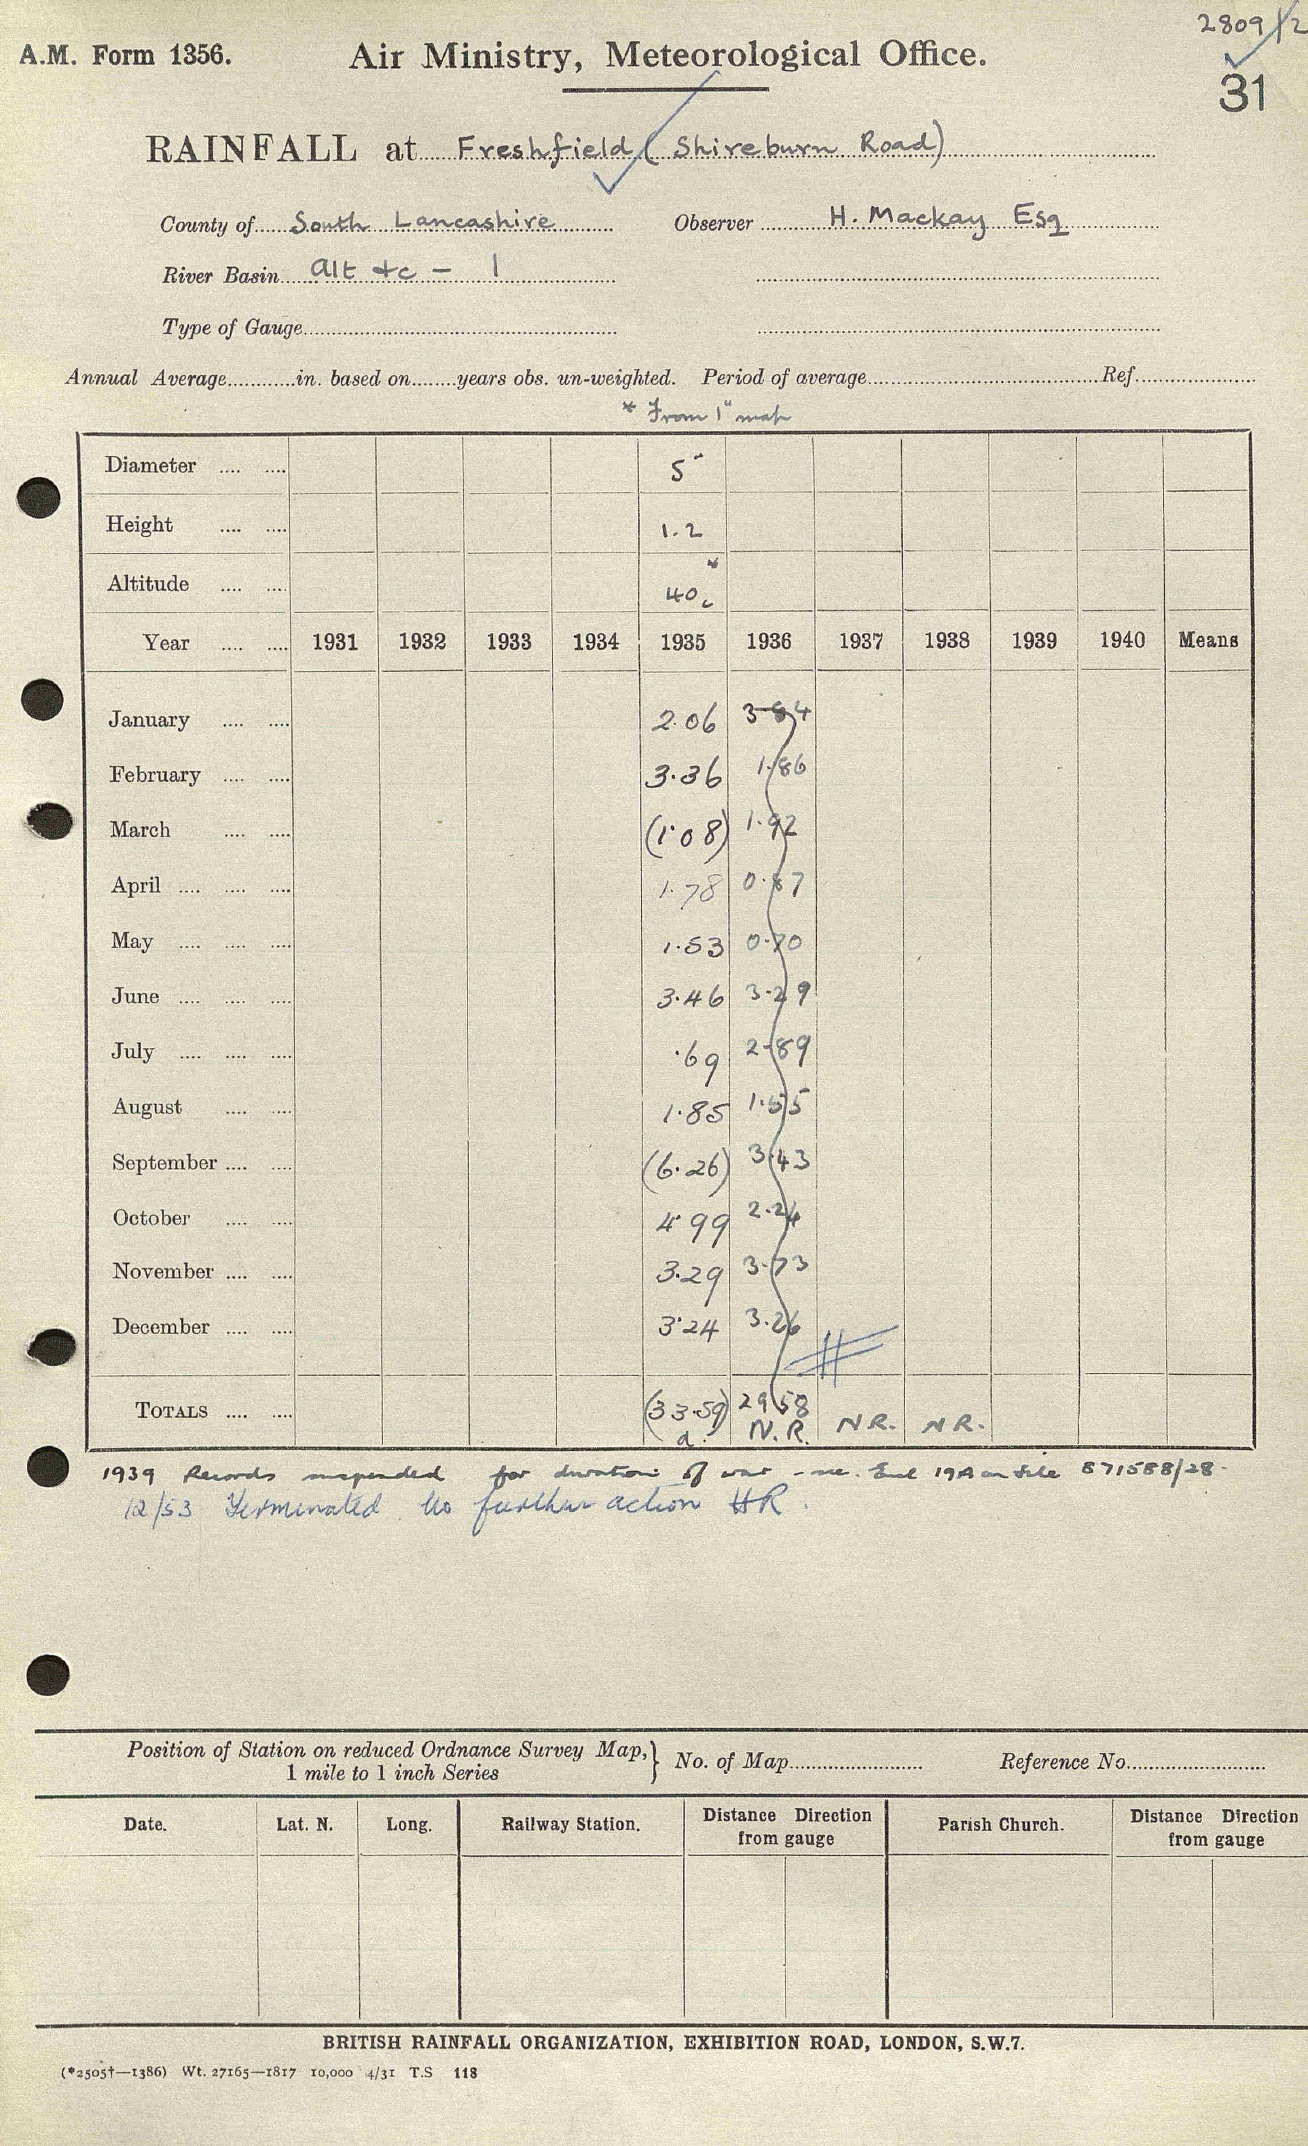 2809/2
A.M. Form 1356. Air Ministry, Meteorological Office.
31
RAINFALL at Freshfield (Shireburn Road)
County of South Lancashire Observer H. Mackay Esq
River Basin Alt &c - 1
Type of Gauge
Annual Average in. based on years obs. un-weighted. Period of average Ref
* From 1" map
Diameter 5"
Height 1.2
Altitude 40c *
Year 1931 1932 1933 1934 1935 1936 1937 1938 1939 1940 Means
January 2.06 3.84
February 3.36 1.86
March (1.08) 1.92
April 1.78 0.87
May 1.53 0.70
June 3.46 3.29
July .69 2.89
August 1.85 1.55
September (6.26) 3.43
October 4.99 2.24
November 3.29 3.73
December 3.24 3.26
TOTALS (33.59) 29.58
a. N.R. N.R. N.R.
1939 Records suspended for duration of war - see. Encl 19A on file 871588/28.
12/53 Terminated No further action HR.
Position of Station on reduced Ordnance Survey Map, } No. of Map Reference No.
1 mile to 1 inch Series
Date. Lat. N. Long. Railway Station. Distance Direction from gauge Parish Church. Distance Direction from gauge
BRITISH RAINFALL ORGANIZATION, EXHIBITION ROAD, LONDON, S.W.7.
(*2505†—1386) Wt. 27165—1817 10,000 4/31 T.S 118